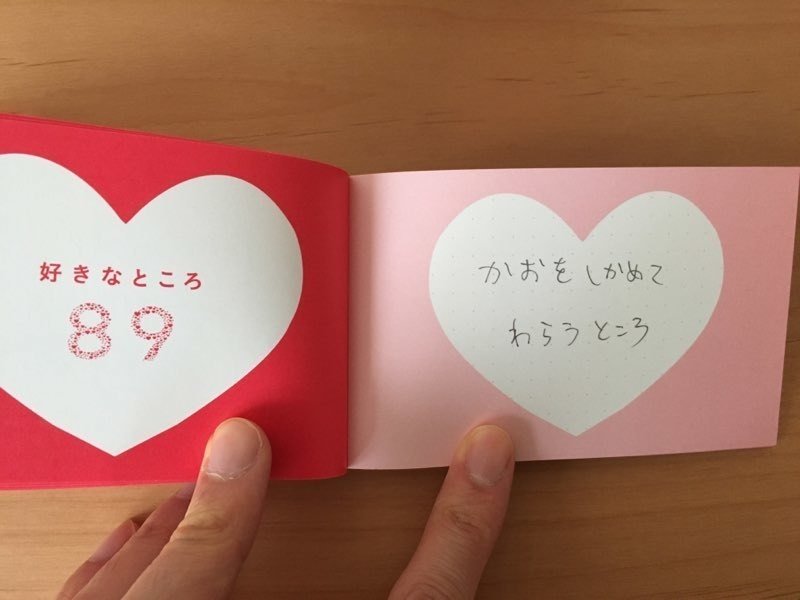 好きなところ
89
かおをしかめて
わらうところ